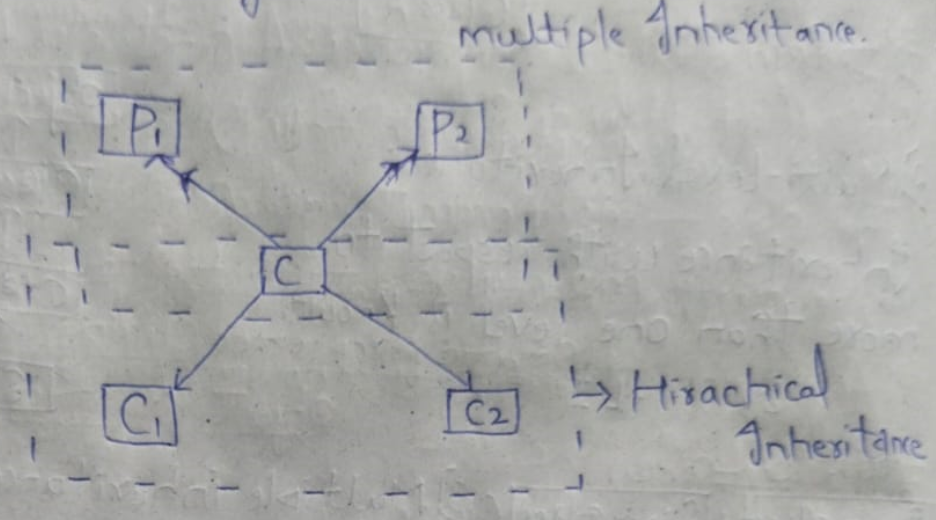 multiple Inheritance.
P1 P2
C
C1 C2
↳ Hirachical
Inheritance